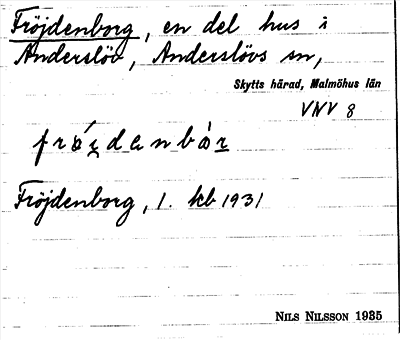 Fröjdenborg, en del hus i
Anderslöv, Anderslövs sn,
Skytts härad, Malmöhus län
VNV 8
Fröjdenborg, 1. kb 1931
NILS NILSSON 1935